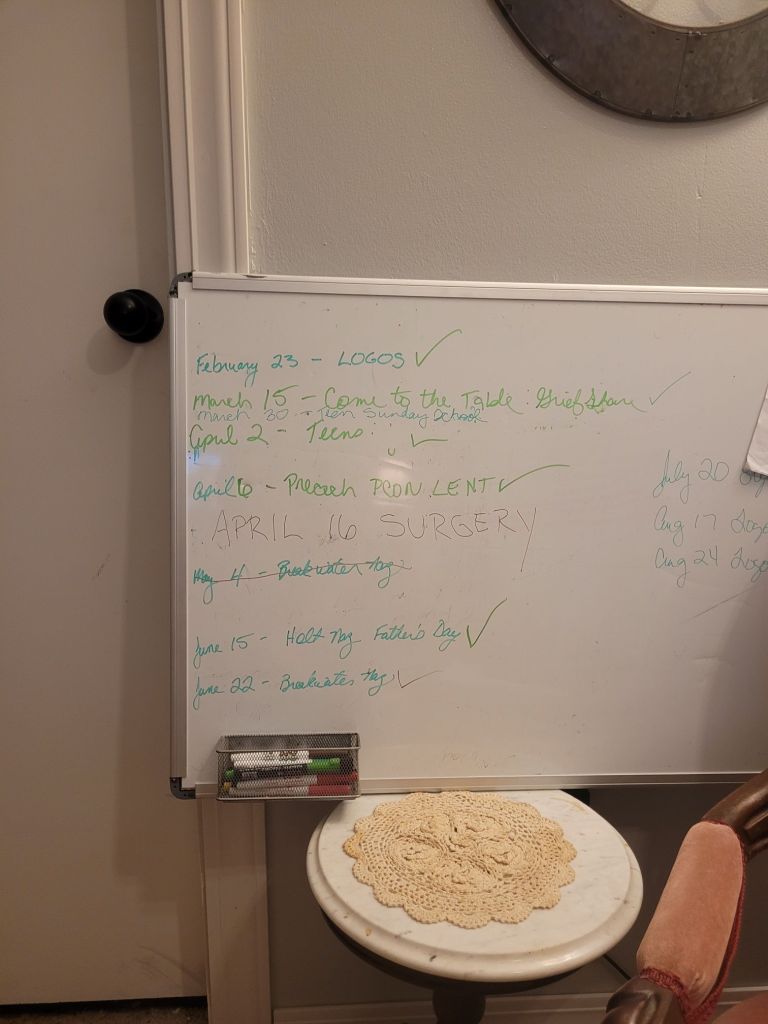 February 23 - LOGOS ✓
March 15 - Come to the Table: GriefShare ✓
March 30 - Teen Sunday School
April 2 - Teens ✓
April 6 - Preach PCON LENT ✓
APRIL 16 SURGERY
May 4 - Breakwater Mag
June 15 - Holt Mag Father's Day ✓
June 22 - Breakwater Mag ✓
July 20
Aug 17
Aug 24